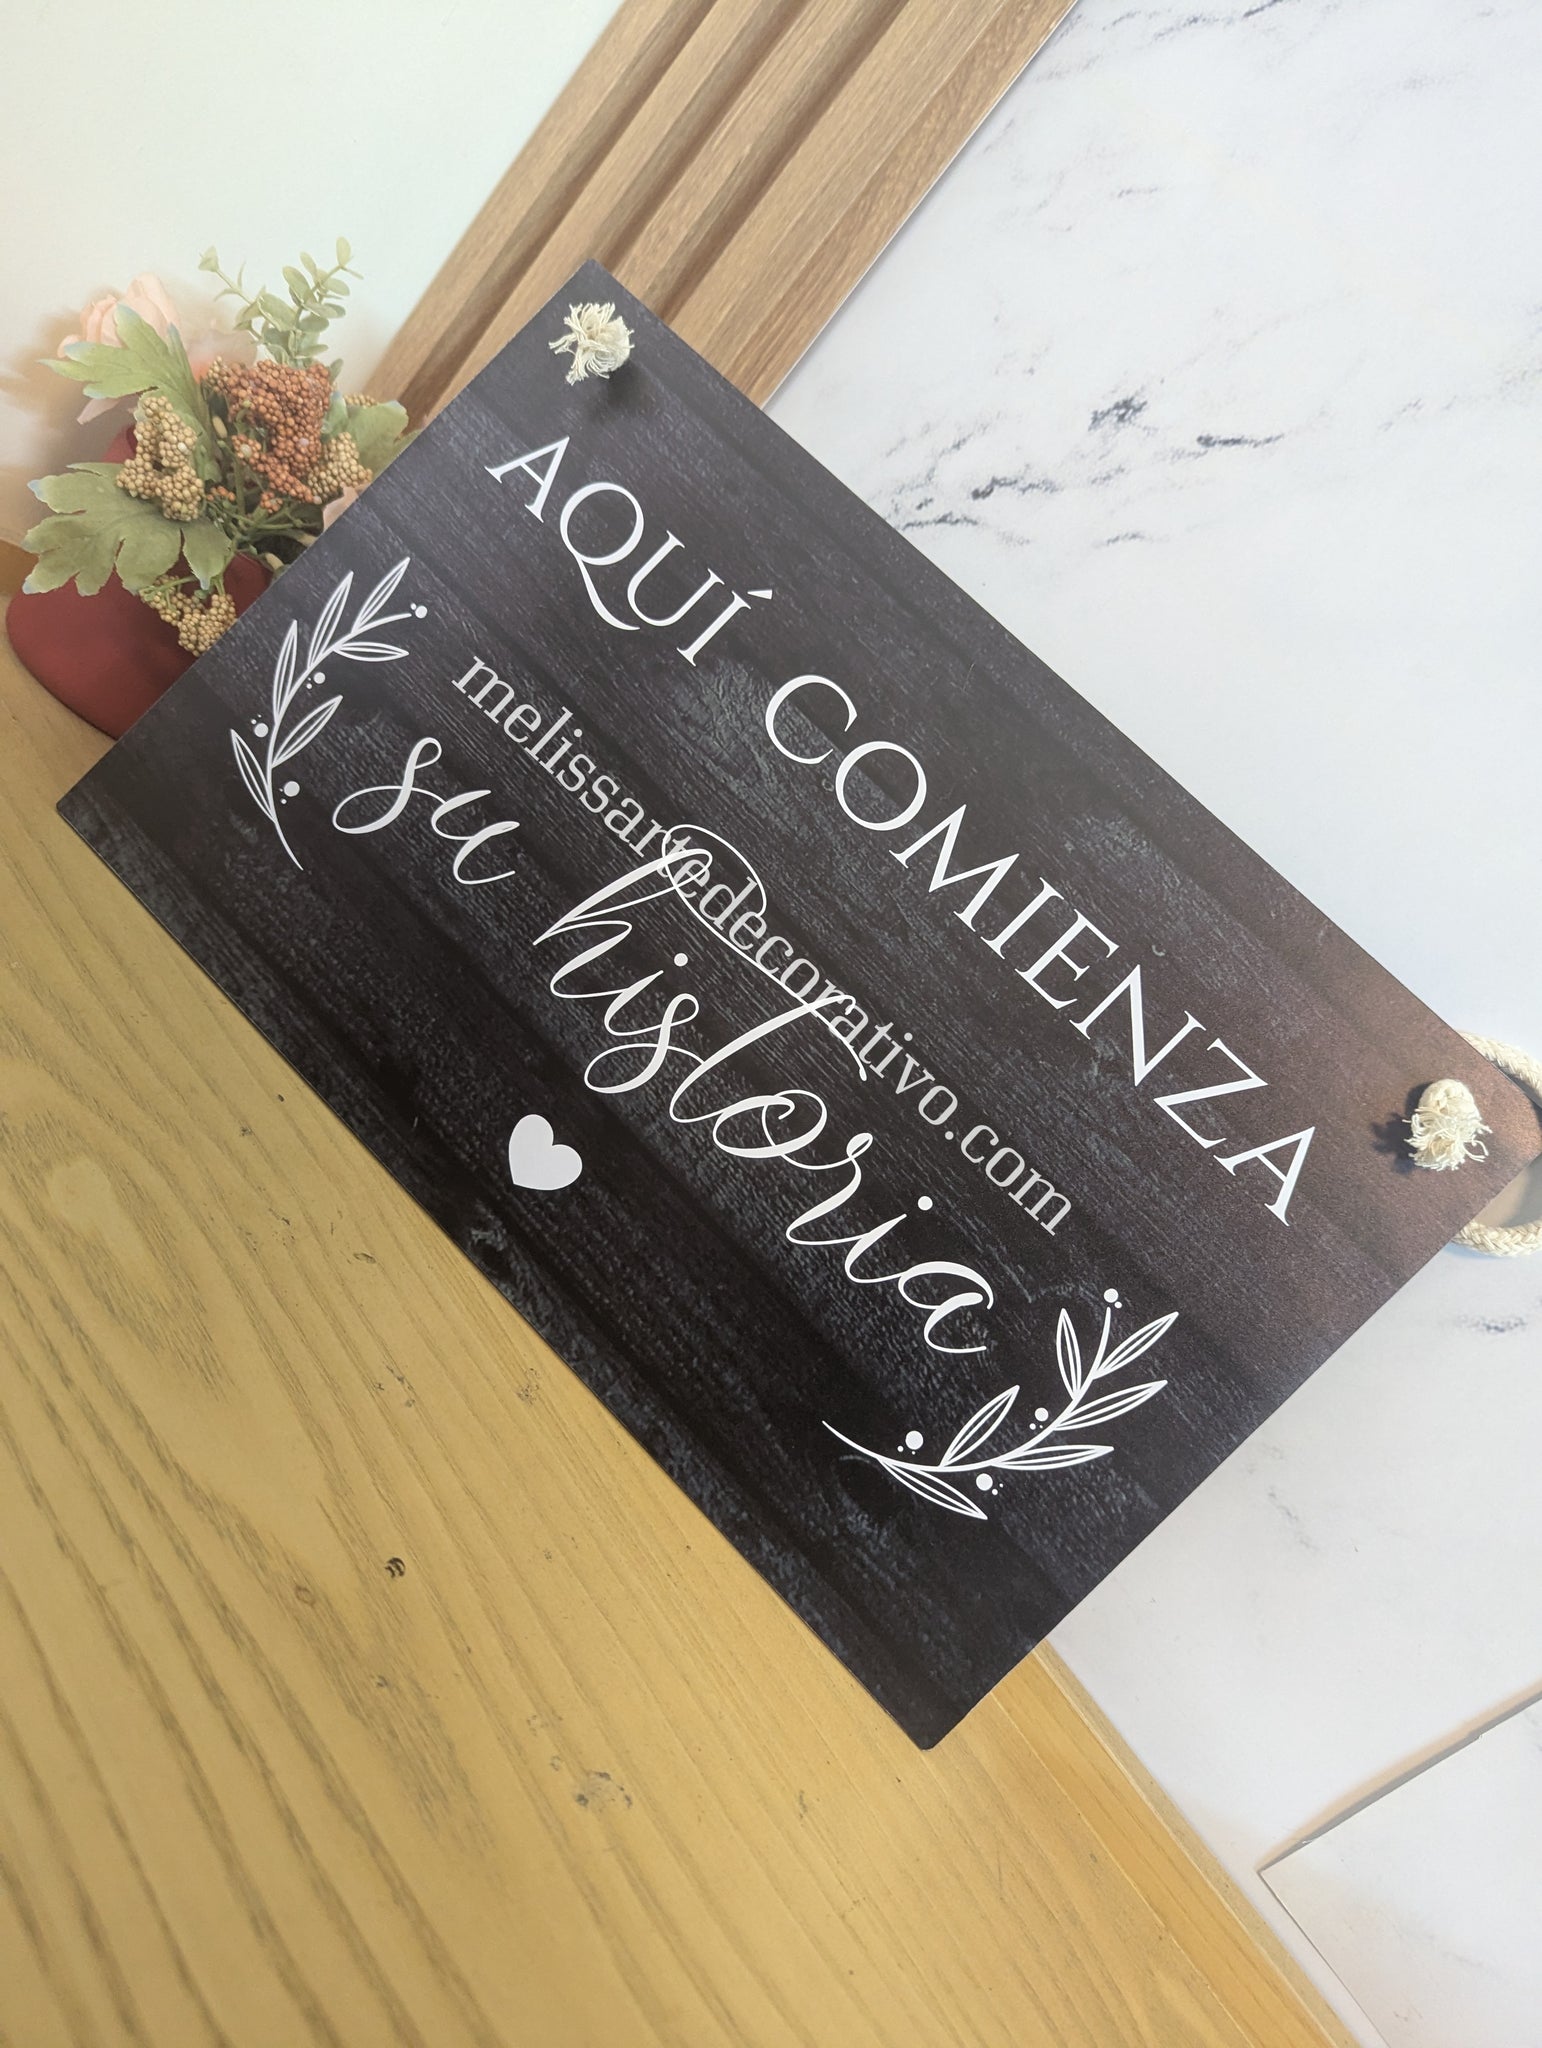 AQUÍ COMIENZA
melissartedecorativo.com
su historia